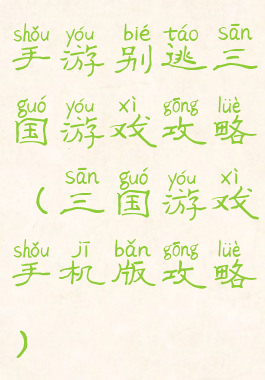 shǒu yóu bié táo sān
手游别逃三
guó yóu xì gōng lüè
国游戏攻略
sān guó yóu xì
（三国游戏
shǒu jī bǎn gōng lüè
手机版攻略
）